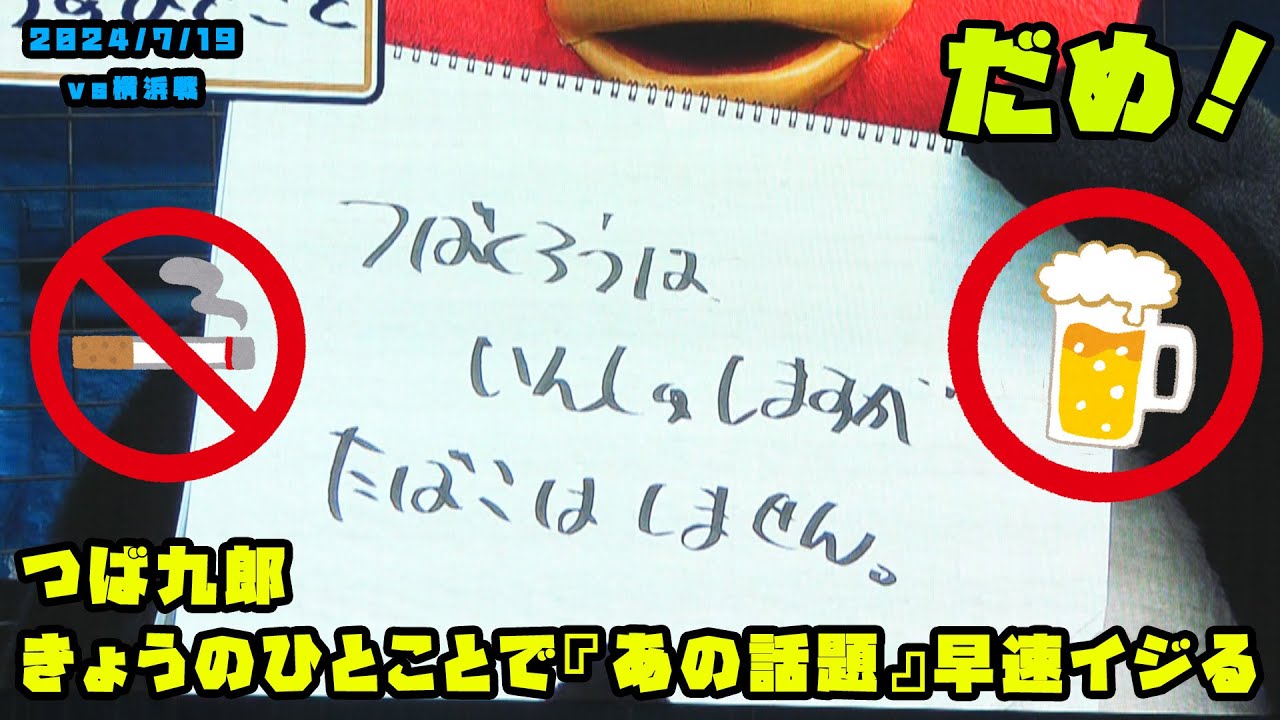 きょうのひとこと
2024/7/19
vs横浜戦
だめ!
つばくろうは
いんしゅしますが
たばこはしません。
つば九郎
きょうのひとことで『あの話題』早速イジる